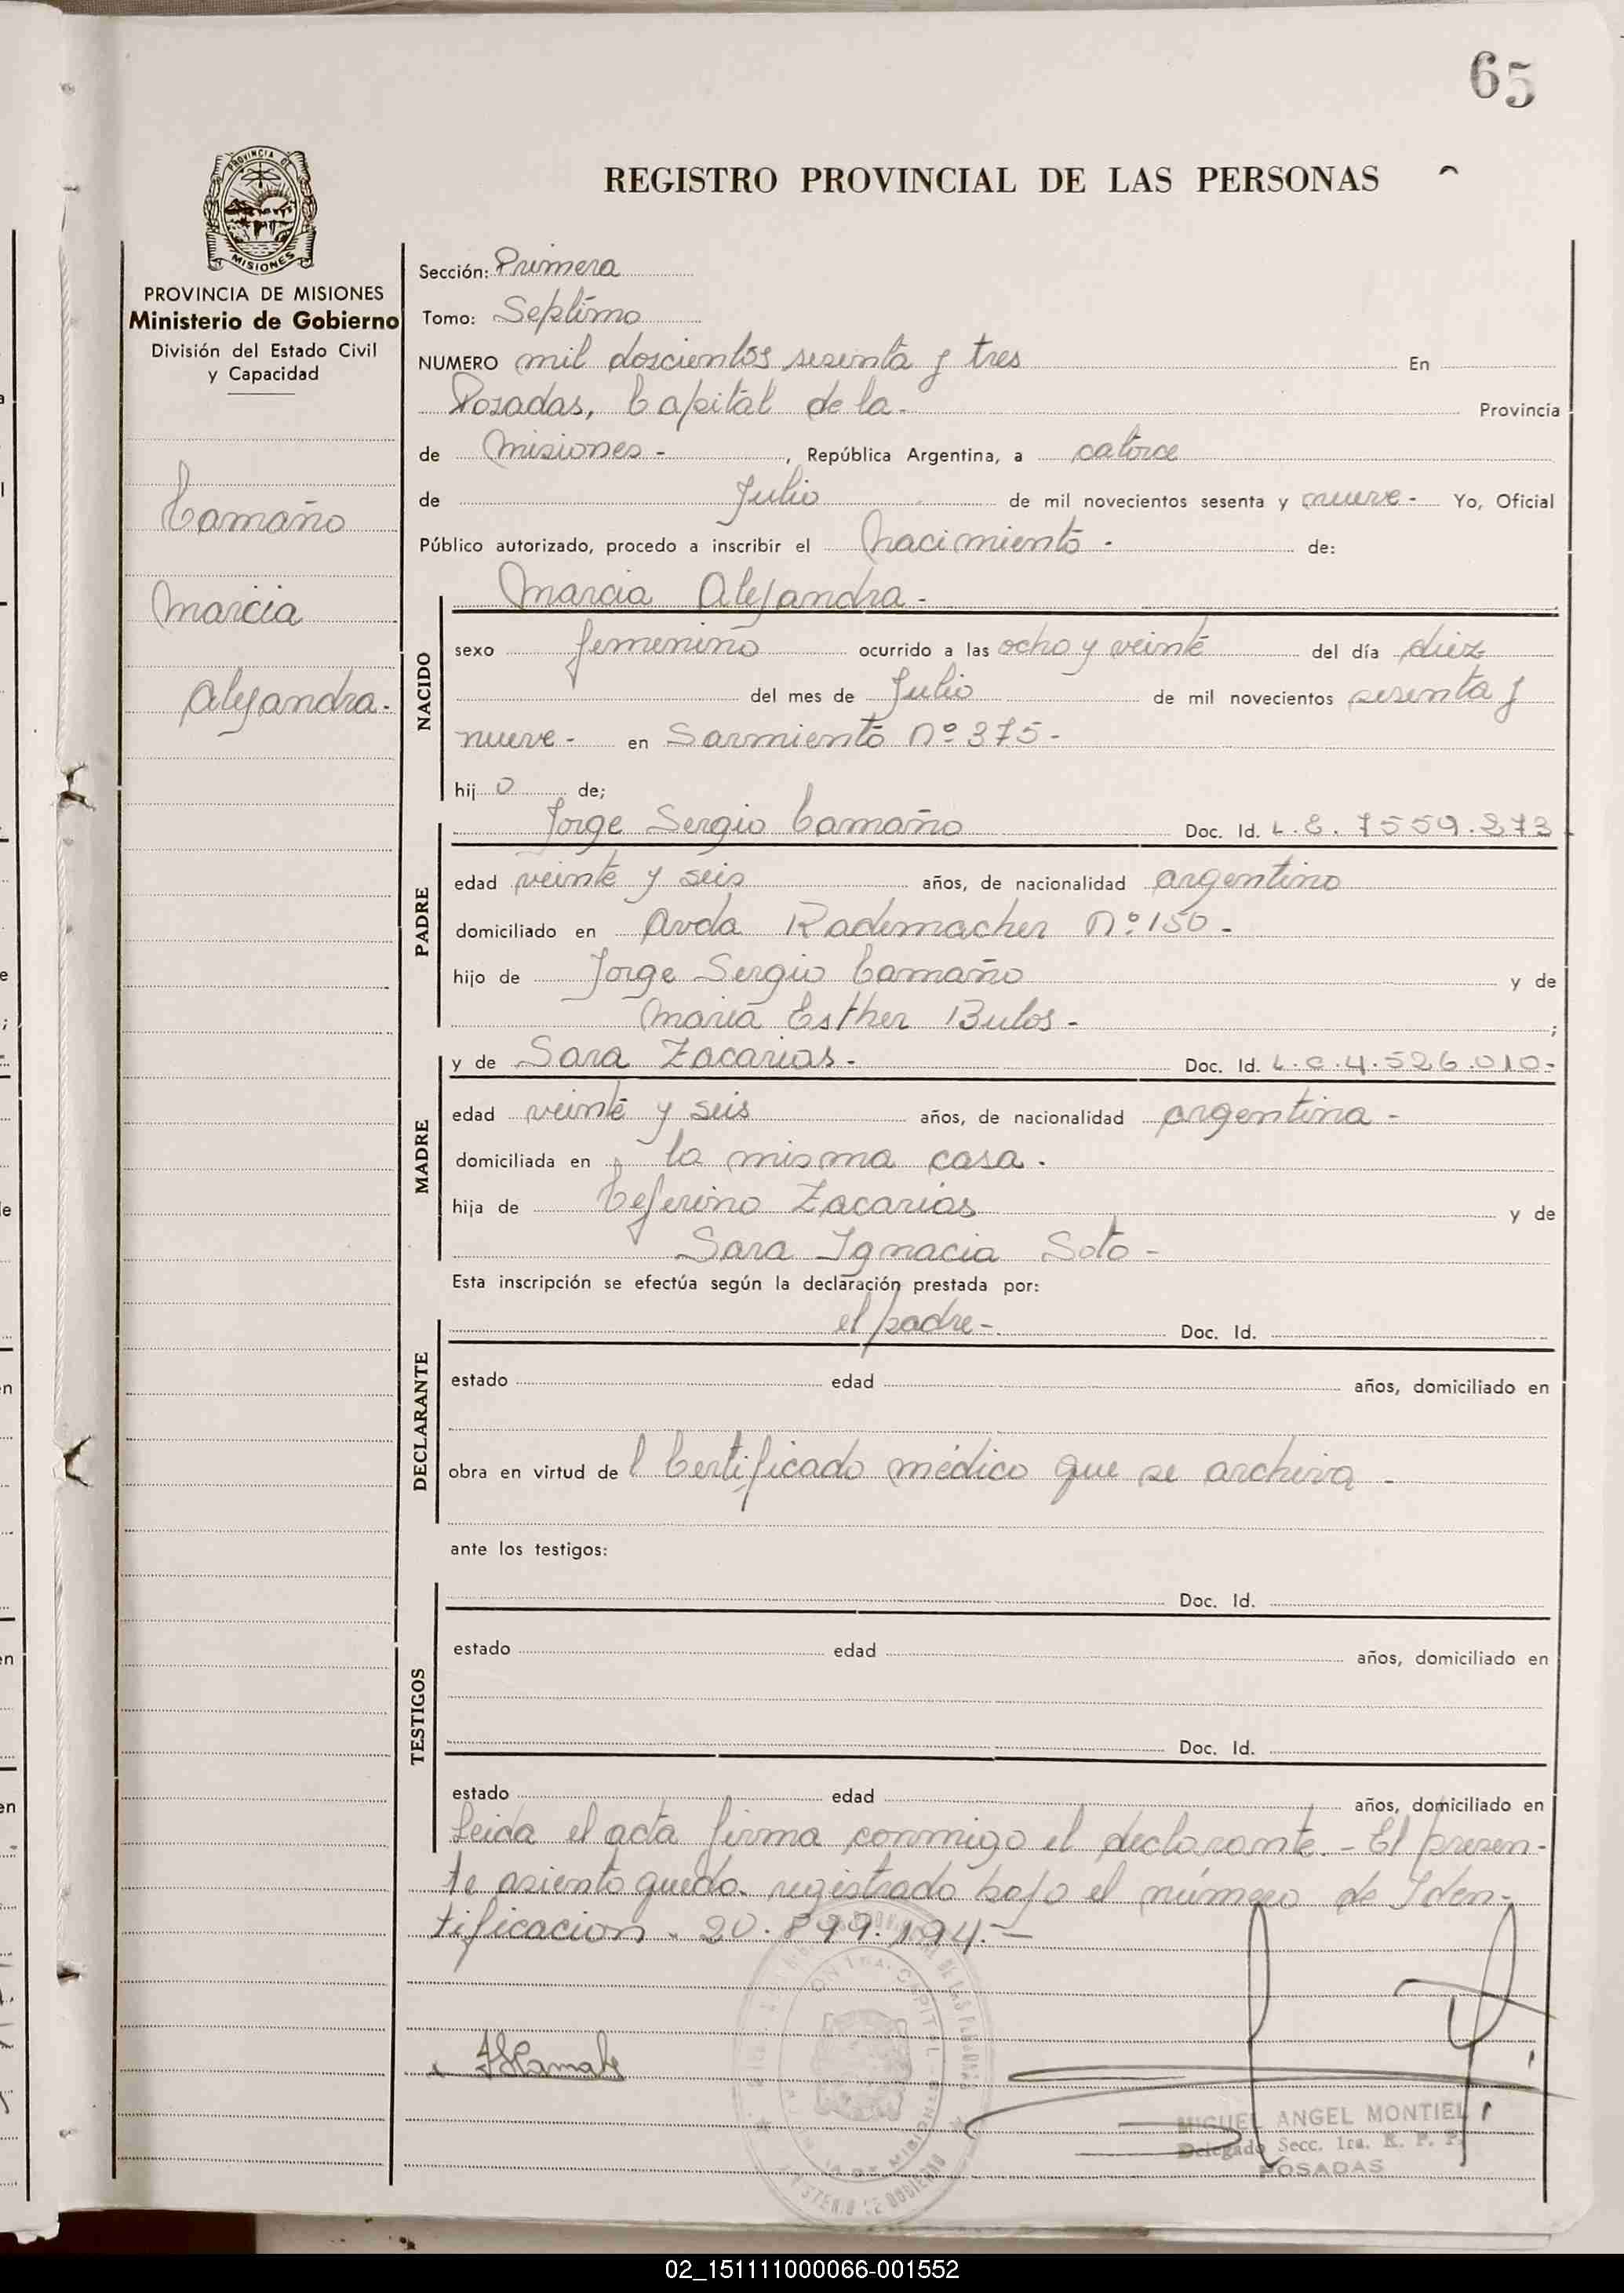 65
REGISTRO PROVINCIAL DE LAS PERSONAS
PROVINCIA DE
MISIONES
PROVINCIA DE MISIONES
Ministerio de Gobierno
División del Estado Civil
y Capacidad
Camaño
Marcia
Alejandra.
Sección: Primera
Tomo: Septimo
NUMERO mil doscientos sesenta y tres En
Posadas, Capital de la. Provincia
de Misiones - , República Argentina, a catorce
de Julio de mil novecientos sesenta y nueve - Yo, Oficial
Público autorizado, procedo a inscribir el Nacimiento - de:
NACIDO
Marcia Alejandra -
sexo femenino ocurrido a las ocho y veinte del día diez
del mes de Julio de mil novecientos sesenta y
nueve - en Sarmiento Nº 375 -
hij o de;
PADRE
Jorge Sergio Camaño Doc. Id. L.E. 7559.273
edad veinte y seis años, de nacionalidad argentino
domiciliado en Avda Rademacher Nº 150 -
hijo de Jorge Sergio Camaño y de
Maria Esther Bulos - ;
MADRE
y de Sara Zacarias - Doc. Id. L.C. 4.526.010 -
edad veinte y seis años, de nacionalidad argentina -
domiciliada en la misma casa.
hija de Ceferino Zacarias y de
Sara Ignacia Soto -
Esta inscripción se efectúa según la declaración prestada por:
DECLARANTE
el padre - Doc. Id.
estado edad años, domiciliado en
obra en virtud de l Certificado médico que se archiva -
ante los testigos:
TESTIGOS
Doc. Id.
estado edad años, domiciliado en
Doc. Id.
estado edad años, domiciliado en
Leida el acta firma conmigo el declarante. - El presen-
te asiento quedo registrado bajo el número de Iden-
tificacion - 20.899.194. -
MIGUEL ANGEL MONTIEL
Delegado Secc. 1ra. R. P. P.
POSADAS
02_151111000066-001552